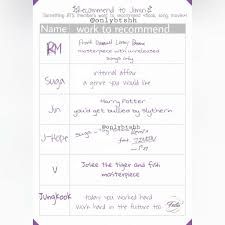 Recommend to Jimin!
Something BTS members want to recommend <Book, song, movie>
@onlybtshh
Name work to recommend
RM
masterpiece with unreleased
songs only
Suga
internal affair
a genre you would like
Jin
Harry Potter
you'd get bullied by Slytherin
@onlybtshh
J-Hope
V
Josee the tiger and fish
masterpiece
Jungkook
today you worked hard
work hard in the future too
Festa